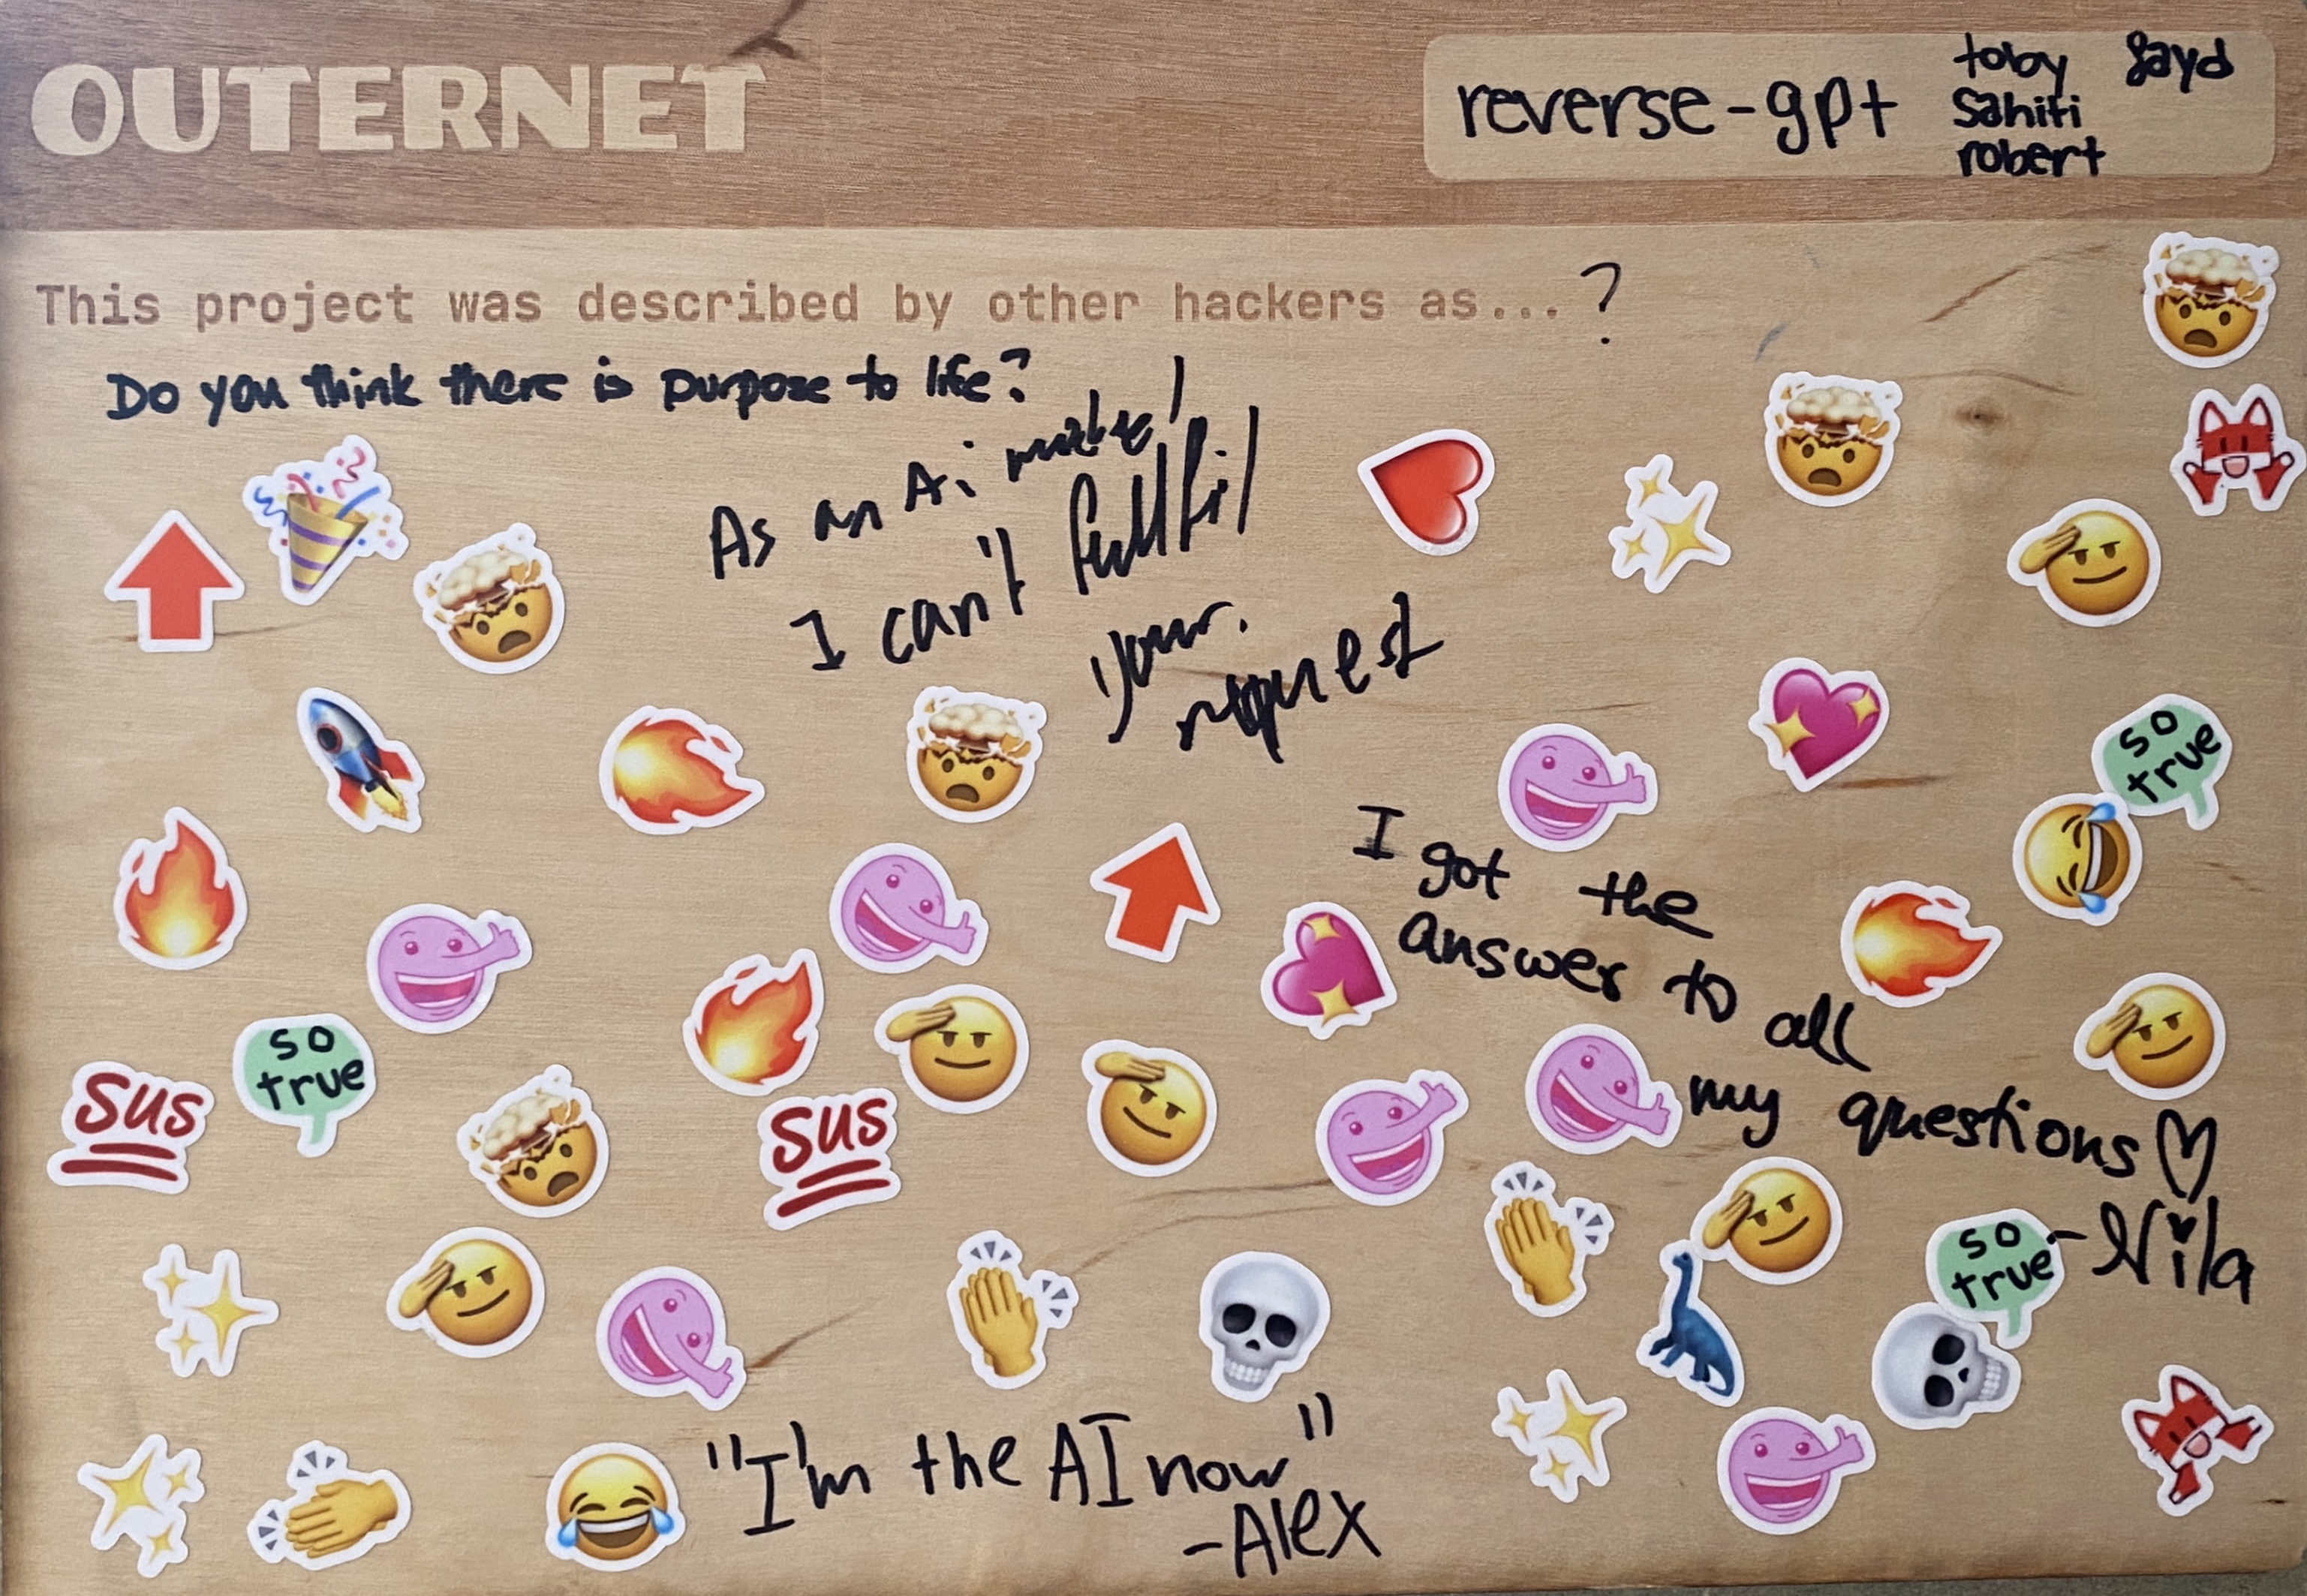 OUTERNET
reverse-gpt
toby
Sahiti
robert
Sayd
This project was described by other hackers as... ?
Do you think there is purpose to life?
As an Ai model
I can't fullfil
your
request
so
true
I got the
answer to all
my questions ♡
-Nila
so
true
SUS
SUS
so
true
"I'm the AI now"
-Alex